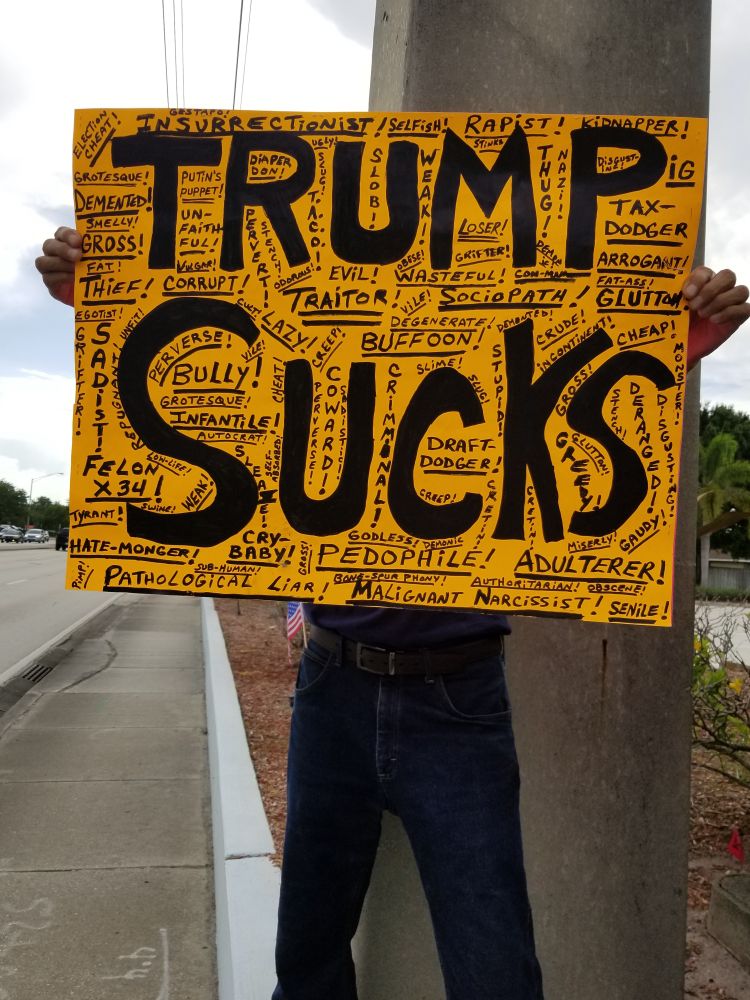 GESTAPO!
ELECTION CHEAT!
INSURRECTIONIST!
SELFISH!
RAPIST!
KIDNAPPER!
TRUMP
UGLY!
STINKS
DIAPER DON!
PUTIN'S PUPPET!
GROTESQUE!
DEMENTED!
SMELLY!
GROSS!
FAT!
THIEF!
UN-FAITHFUL!
VULGAR!
CORRUPT!
PERVERT!
STENCH!
ODOROUS!
TACO!
SLOB!
WEAK!
LOSER!
GRIFTER!
OBESE!
THUG!
NAZI!
DISGUSTING!
PIG
TAX-DODGER
ARROGANT!
FAT-ASS!
GLUTTON!
EVIL!
WASTEFUL!
CON-MAN!
TRAITOR!
VILE!
SOCIOPATH!
EGOTIST!
GRIFTER!
SADIST!
UNFIT!
REPUGNANT!
LAZY!
CREEP!
DEGENERATE!
BUFFOON!
DEMENTED!
CRUDE!
INCONTINENT!
CHEAP!
MONSTER!
SUCKS
PERVERSE!
VILE!
BULLY!
GROTESQUE!
INFANTILE!
AUTOCRAT!
CHEAT!
PERVERSE!
COWARD!
SADISTIC!
CRIMINAL!
SLIME!
SLUG!
STUPID!
DRAFT-DODGER!
CREEP!
CRETIN!
CRETIN!
GROSS!
GREEDY!
GLUTTON!
DERANGED!
DISGUSTING!
GAUDY!
MISERLY!
FELON X34!
LOW-LIFE!
SWINE!
WEAK!
SLEAZE!
SELF-ABSORBED!
TYRANT!
HATE-MONGER!
CRY-BABY!
GROSS!
GODLESS!
DEMONIC
PEDOPHILE!
ADULTERER!
PIMP!
SUB-HUMAN!
PATHOLOGICAL LIAR!
BONE-SPUR PHONY!
MALIGNANT NARCISSIST!
AUTHORITARIAN!
OBSCENE!
SENILE!